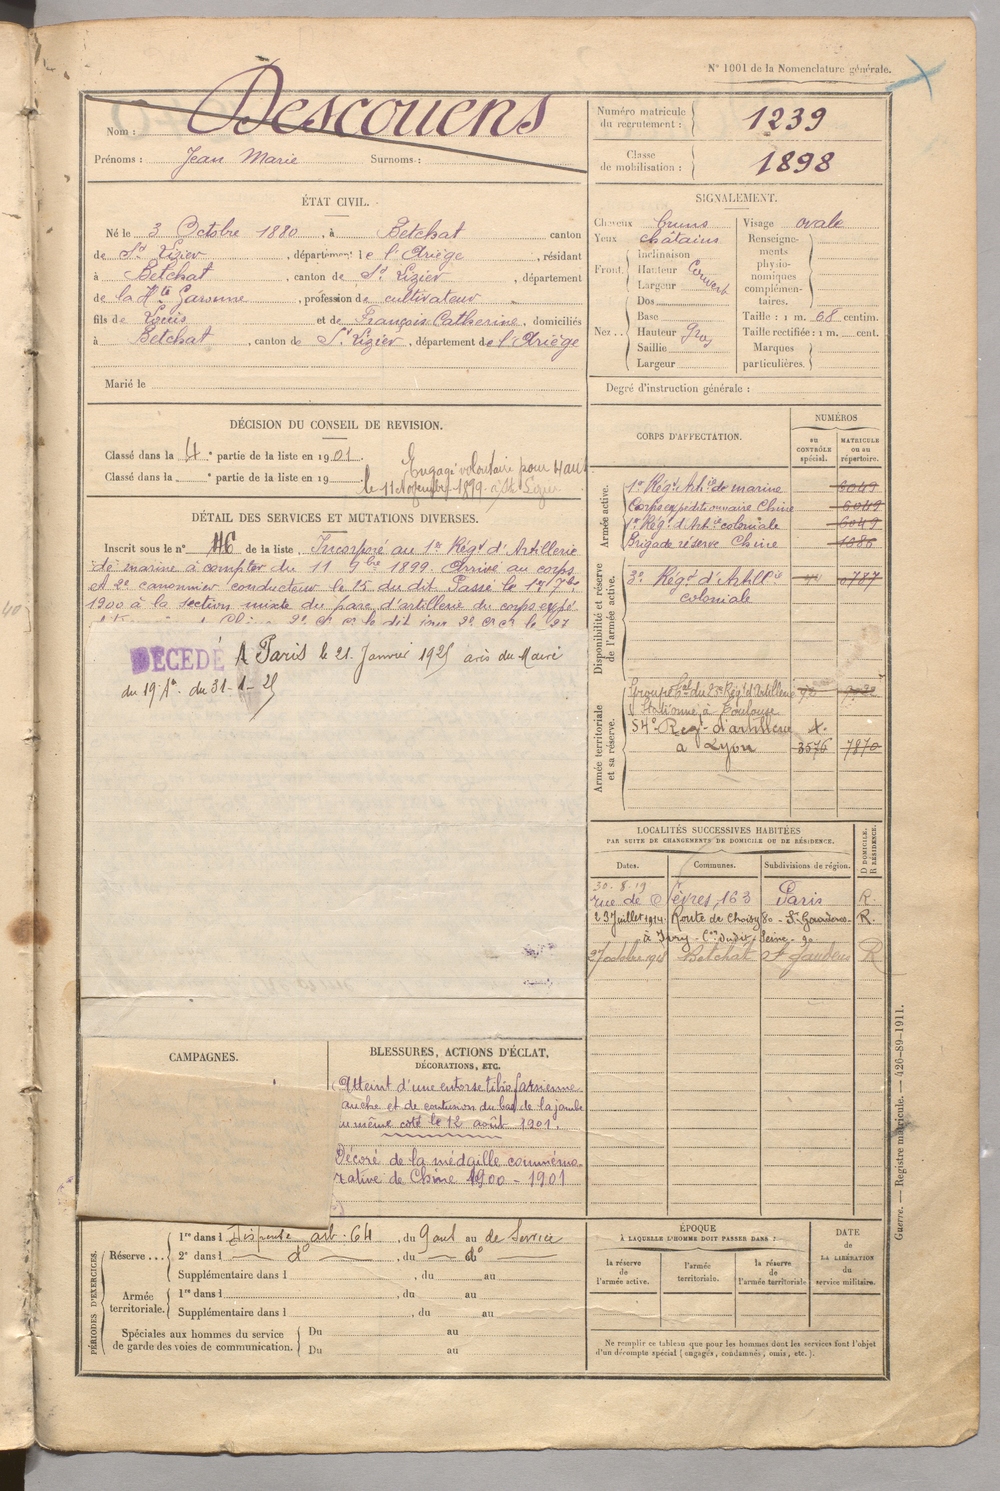 N° 1001 de la Nomenclature générale.
Nom : Descouens
Prénoms : Jean Marie Surnoms :
Numéro matricule du recrutement : 1239
Classe de mobilisation : 1898
ÉTAT CIVIL.
Né le 3 Octobre 1880, à Betchat canton
de St Lizier, département de l'Ariège, résidant
à Betchat, canton de St Lizier, département
de la Hte Garonne, profession de cultivateur
fils de Louis et de François Catherine, domiciliés
à Betchat, canton de St Lizier, département de l'Ariège
Marié le
SIGNALEMENT.
Cheveux bruns
Yeux châtains
Front Inclinaison
Hauteur Couvert
Largeur
Nez Dos
Base
Hauteur Gros
Saillie
Largeur
Visage ovale
Renseignements physionomiques complémentaires.
Taille : 1 m. 68 centim.
Taille rectifiée : 1 m. cent.
Marques particulières.
Degré d'instruction générale :
DÉCISION DU CONSEIL DE REVISION.
Classé dans la 4e partie de la liste en 1901.
Classé dans la e partie de la liste en 19
Engagé volontaire pour 4 ans
le 11 Novembre 1899 à St Lizier
DÉTAIL DES SERVICES ET MUTATIONS DIVERSES.
Inscrit sous le n° 46 de la liste. Incorporé au 1er Régt d'Artillerie
de marine à compter du 11 9bre 1899. Arrivé au corps
et 2e canonnier conducteur le 15 du dit. Passé le 1er 7bre
1900 à la section mixte du parc d'artillerie du corps expé
DÉCÉDÉ A Paris le 21 Janvier 1925 avis du Maire
du 19e At. du 31-1-25
CORPS D'AFFECTATION.
NUMÉROS
au CONTRÔLE spécial.
MATRICULE ou au répertoire.
Armée active.
1er Régt Artie de marine 6049
Corps expéditionnaire Chine 6049
1er Régt d'Artie coloniale 6049
Brigade réserve Chine 1086
Disponibilité et réserve de l'armée active.
3e Régt d'Artillie 0787
coloniale
Armée territoriale et sa réserve.
Groupe tal du 23e Régt d'Artillerie
Stationné à Toulouse
54e Régt d'artillerie
à Lyon 3576 7870
LOCALITÉS SUCCESSIVES HABITÉES
PAR SUITE DE CHANGEMENTS DE DOMICILE OU DE RÉSIDENCE.
Dates. Communes. Subdivisions de région. D DOMICILE. R RÉSIDENCE.
30-8-19
rue de Sèvres, 163 Paris R.
23 Juillet 1914 Route de Choisy 80 - St Gaudens - R.
à Ivry - Con dudit - Seine -
27 octobre Betchat St Gaudens R
CAMPAGNES.
BLESSURES, ACTIONS D'ÉCLAT, DÉCORATIONS, ETC.
Atteint d'une entorse tibio tarsienne
gauche et de contusion du bas de la jambe
du même côté le 12 août 1901.
Décoré de la médaille commémo-
rative de Chine 1900 - 1901
PÉRIODES D'EXERCICES.
Réserve ... 1re dans l Dispensé art. 64, du 9 aut au de Service
2e dans l do, du do
Supplémentaire dans l , du au
Armée territoriale. 1re dans l , du au
Supplémentaire dans l , du au
Spéciales aux hommes du service de garde des voies de communication. Du au
Du au
ÉPOQUE
À LAQUELLE L'HOMME DOIT PASSER DANS :
la réserve de l'armée active.
l'armée territoriale.
la réserve de l'armée territoriale
DATE de LA LIBÉRATION du service militaire.
Ne remplir ce tableau que pour les hommes dont les services font l'objet
d'un décompte spécial (engagés, condamnés, omis, etc.).
Guerre. — Registre matricule. — 426-89-1911.